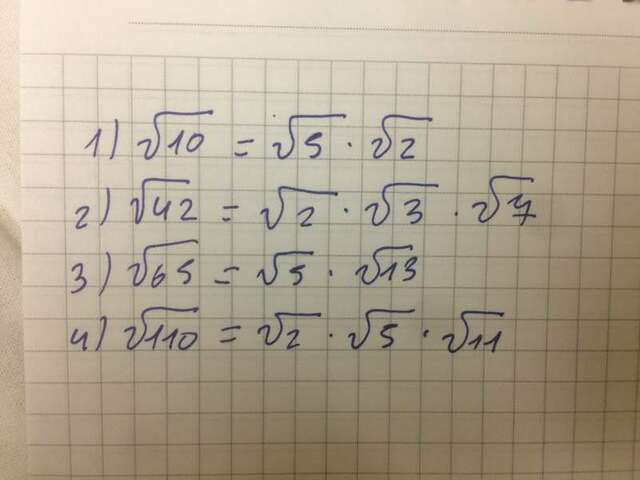 1) √10 = √5 · √2
2) √42 = √2 · √3 · √7
3) √65 = √5 · √13
4) √110 = √2 · √5 · √11